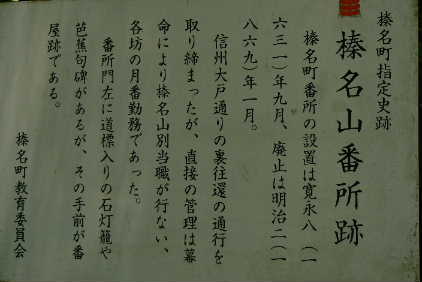 榛名町指定史跡
榛名山番所跡
榛名町番所の設置は寛永八(一
六三一)年九月、廃止は明治二(一
八六九)年一月。
信州大戸通りの裏往還の通行を
取り締まったが、直接の管理は幕
命により榛名山別当職が行ない、
各坊の月番勤務であった。
番所門左に道標入りの石灯籠や
芭蕉句碑があるが、その手前が番
屋跡である。
榛名町教育委員会